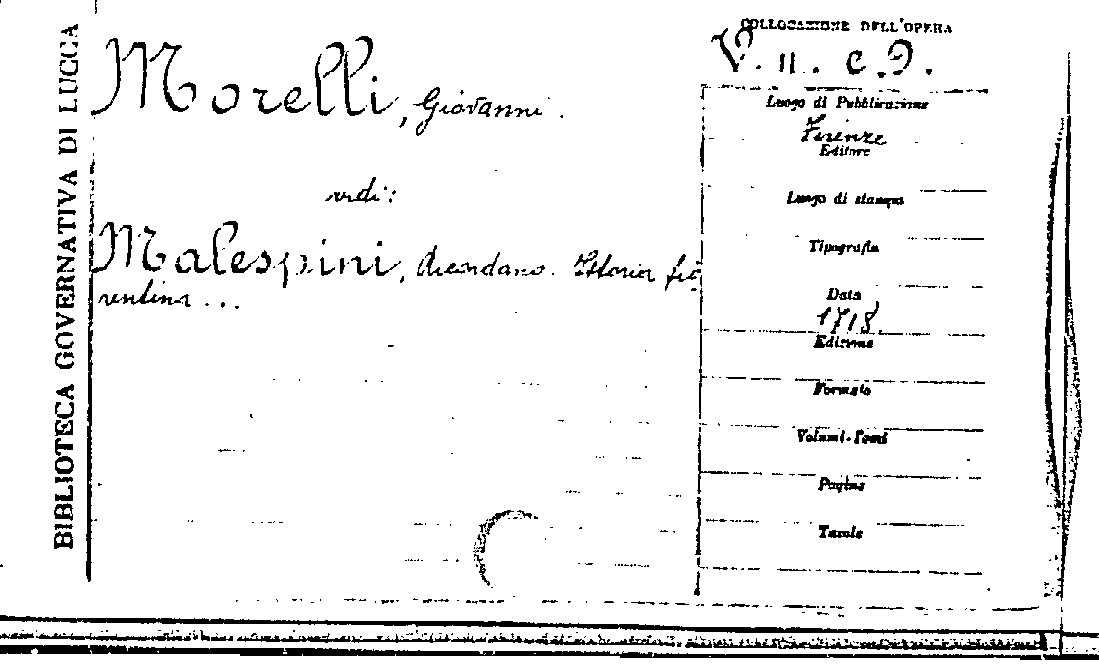 BIBLIOTECA GOVERNATIVA DI LUCCA
Morelli, Giovanni.
vedi:
Malespini, Ricordano. Istoria fio
rentina ...
COLLOCAZIONE DELL'OPERA
V. II. C. 9.
Luogo di Pubblicazione
Firenze
Editore
Luogo di stampa
Tipografia
Data
1718
Edizione
Formato
Volumi-Tomi
Pagine
Tavole